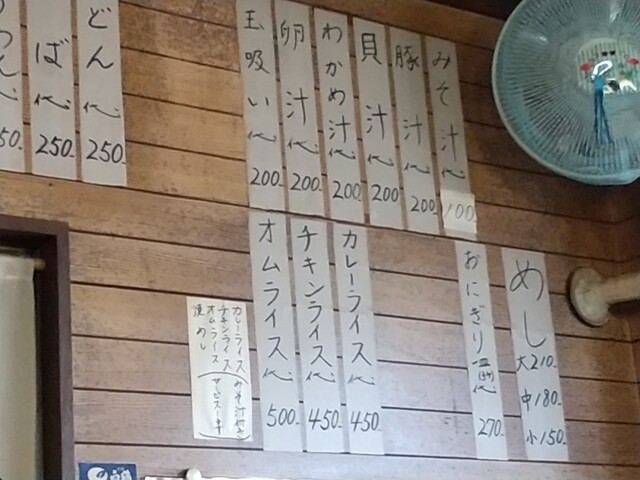 みそ汁代 100
豚汁代 200-
貝汁代 200-
わかめ汁代 200-
卵汁代 200-
玉吸い代 200-
どん代 250-
ば代 250-
めし 大210- 中180- 小150-
おにぎり 代 270-
カレーライス代 450-
チキンライス代 450-
オムライス代 500-
カレーライス
チキンライス
オムライス
焼めし
(みそ汁付
サービス